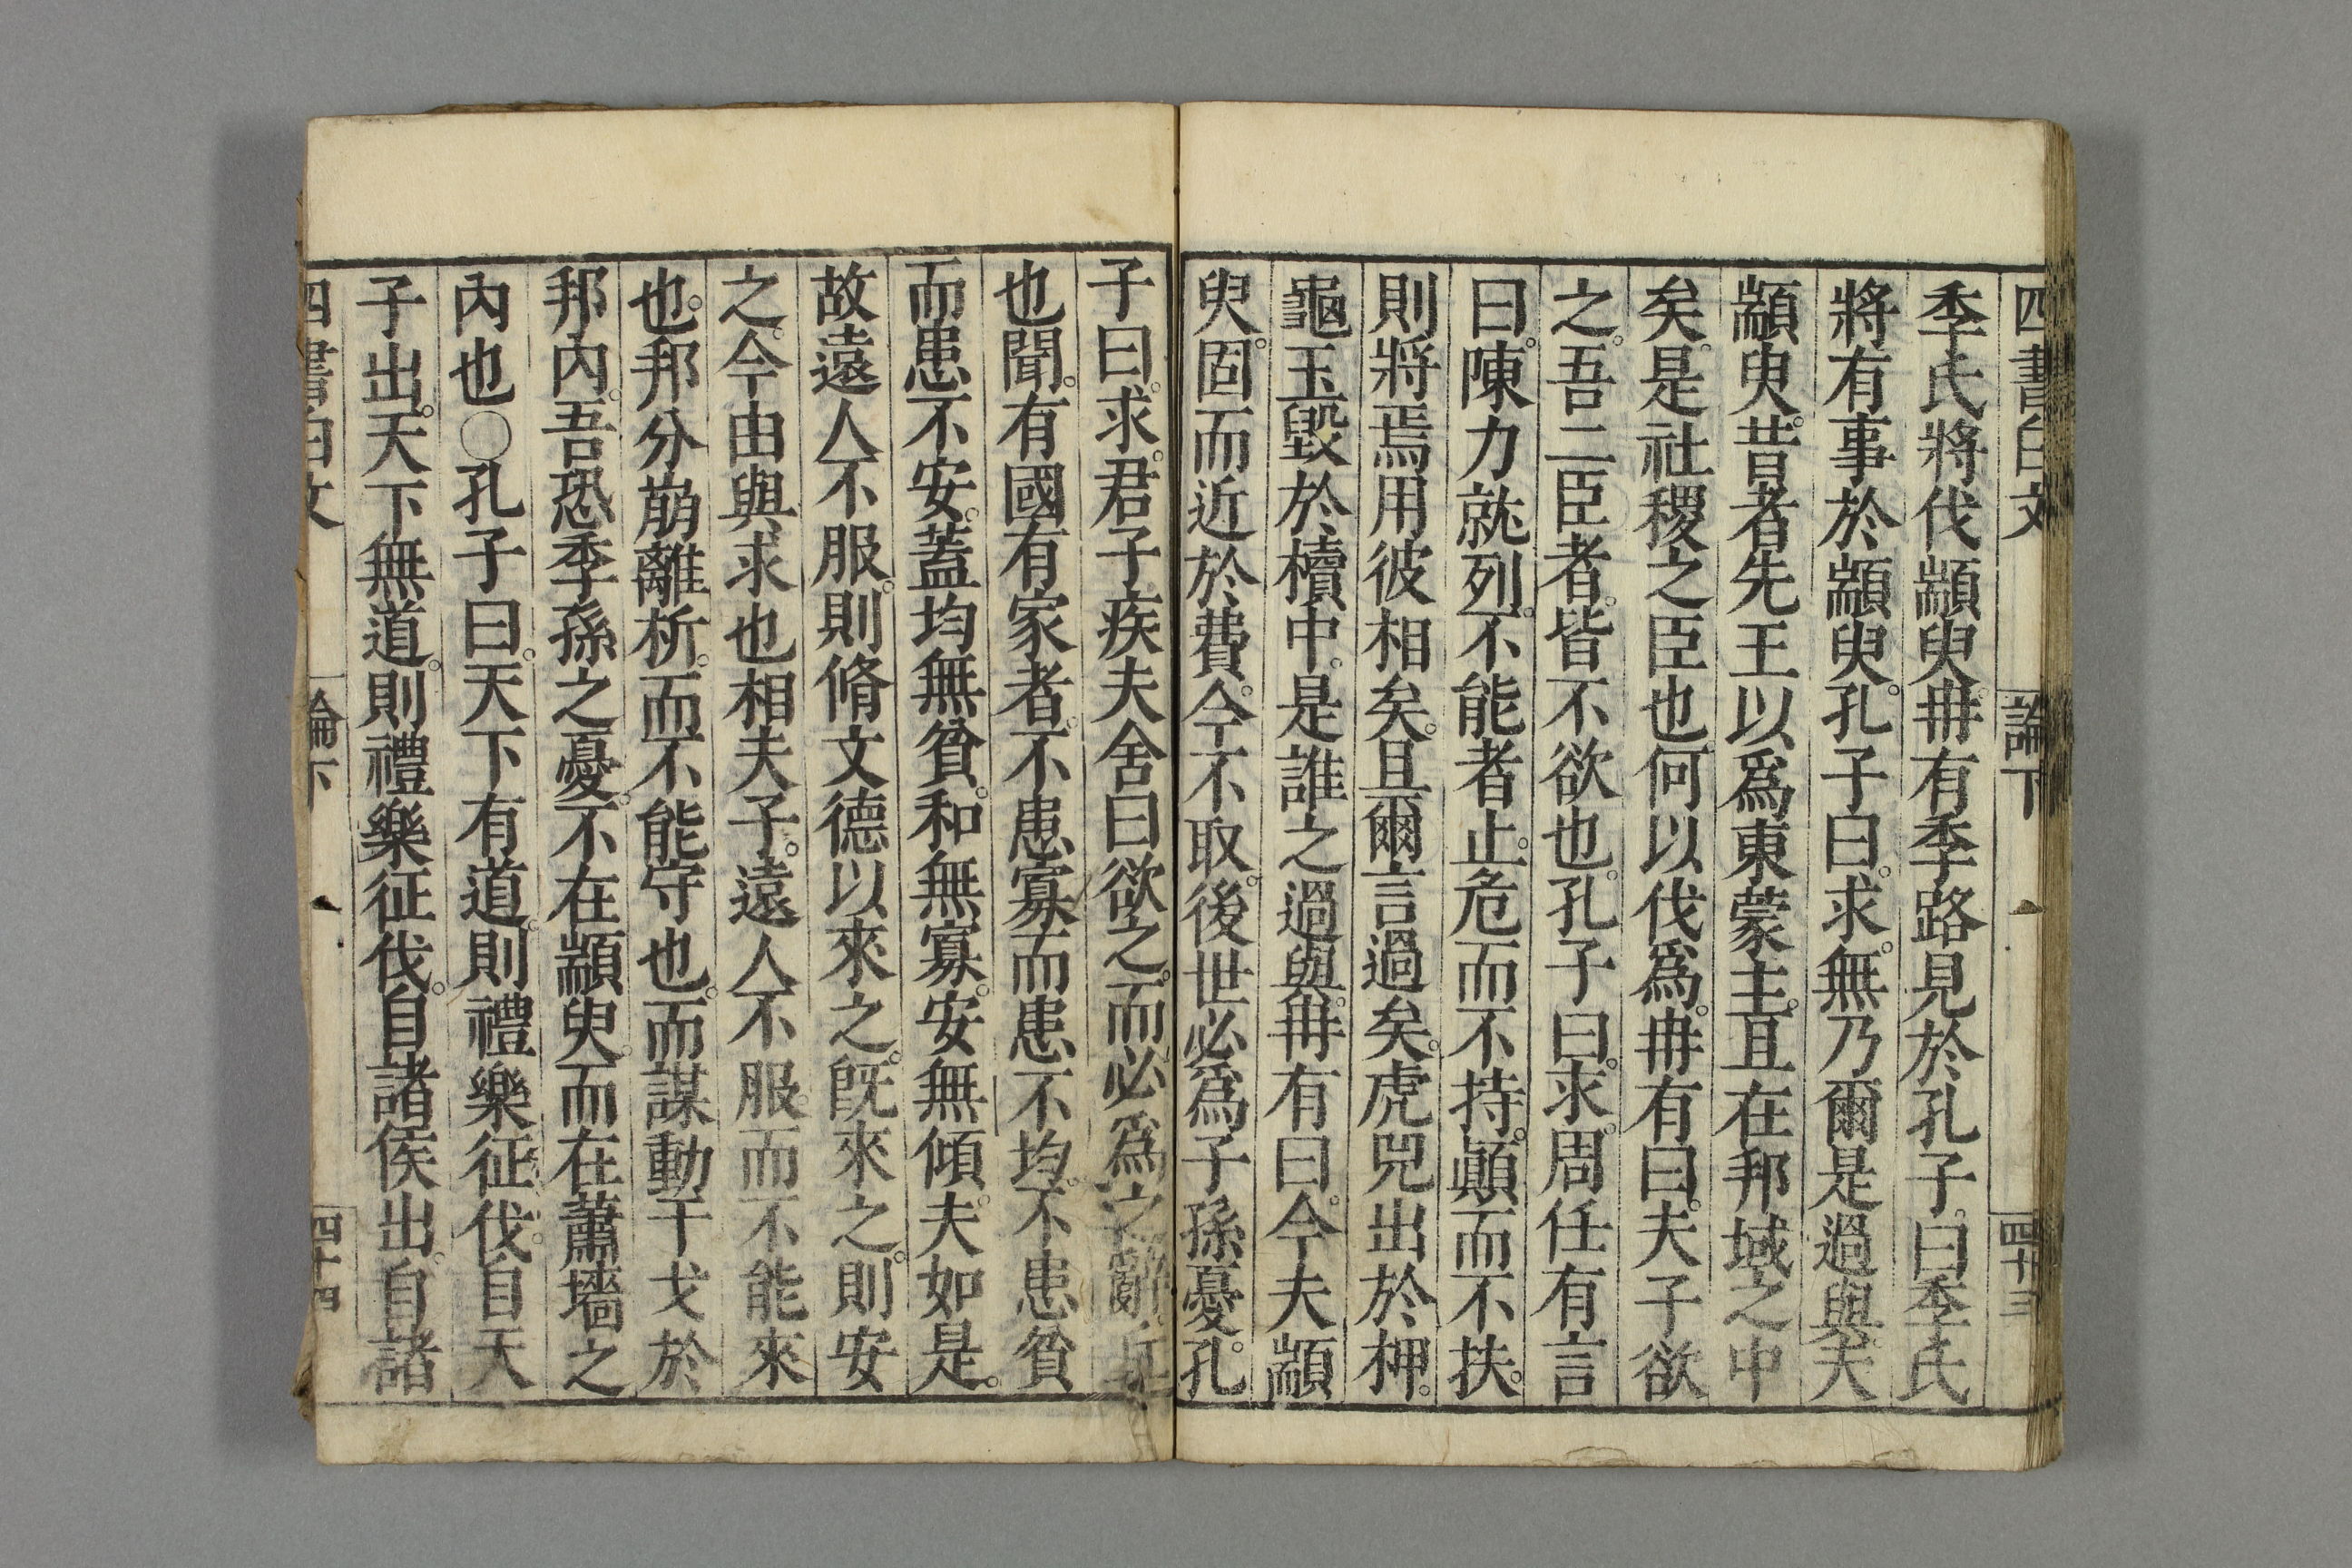 四書白文 論下 四十三
季氏將伐顓臾。冉有季路見於孔子。曰季氏
將有事於顓臾。孔子曰。求。無乃爾是過與。夫
顓臾。昔者先王以爲東蒙主。且在邦域之中
矣。是社稷之臣也何以伐爲。冉有曰。夫子欲
之。吾二臣者。皆不欲也。孔子曰。求。周任有言
曰。陳力就列。不能者止。危而不持。顚而不扶。
則將焉用彼相矣。且爾言過矣。虎兕出於柙。
龜玉毀於櫝中。是誰之過與。冉有曰。今夫顓
臾。固而近於費。今不取。後世必爲子孫憂。孔
子曰。求。君子疾夫舍曰欲之。而必爲之辭。丘
也聞。有國有家者。不患寡而患不均。不患貧
而患不安。蓋均無貧。和無寡。安無傾。夫如是。
故遠人不服。則脩文德以來之。旣來之。則安
之。今由與求也相夫子。遠人不服。而不能來
也。邦分崩離析。而不能守也。而謀動干戈於
邦內。吾恐季孫之憂。不在顓臾。而在蕭墻之
內也〇孔子曰。天下有道。則禮樂征伐。自天
子出。天下無道。則禮樂征伐。自諸侯出。自諸
四書白文 論下 四十四